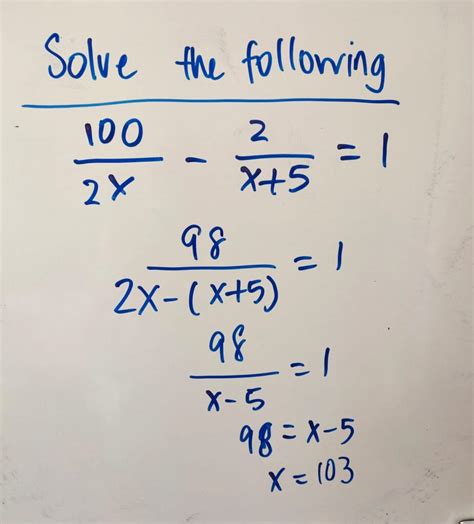 Solve the following
100/2x - 2/x+5 = 1
98/2x-(x+5) = 1
98/x-5 = 1
98 = x-5
x = 103